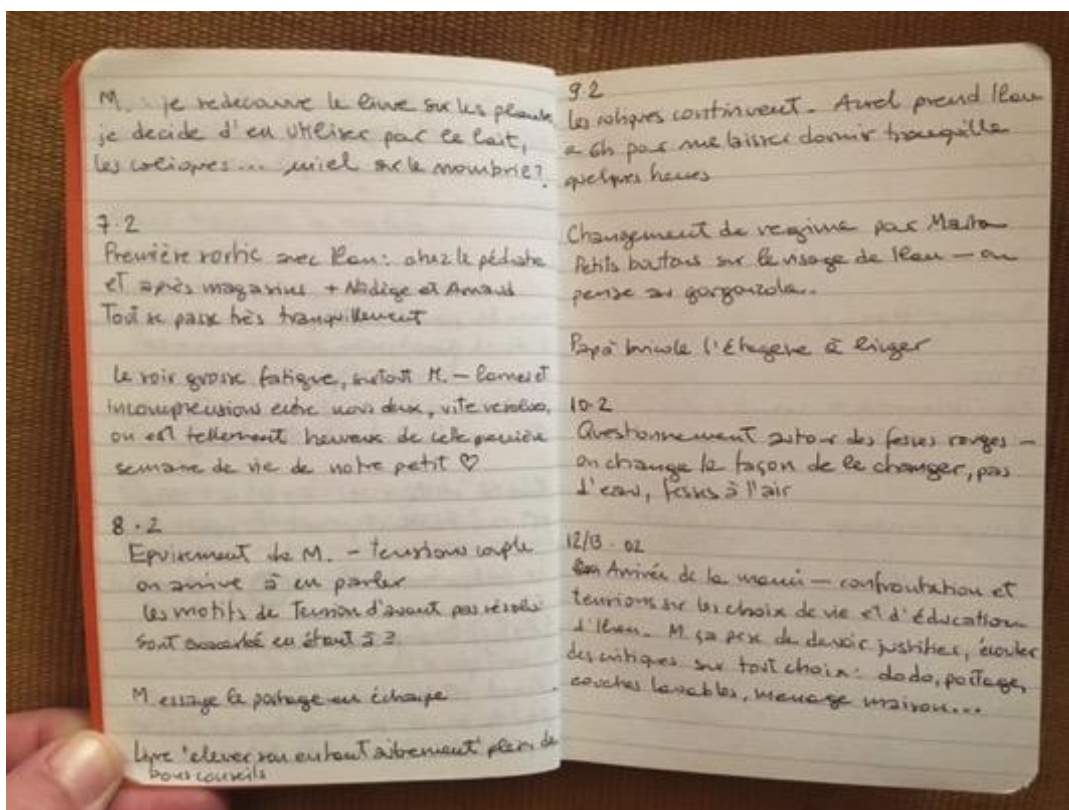 M. je redecouvre le livre sur les plante
je decide d'en utiliser par le lait,
les coliques... miel sur le nombrie?
7.2
Première sortie avec Ilan: chez le pédiatre
et après magasins + Nadège et Arnaud
Tout se passe très tranquillement
Le soir grosse fatigue, surtout M. - larmes et
incompréhensions entre nous deux, vite résolves,
on est tellement heureux de cette première
semaine de vie de notre petit ♡
8.2
Epuisement de M. - tensions couple
on arrive à en parler
les motifs de tension d'avant pas résolus
sont en étant à 3.
M essaye le portage en écharpe
Livre 'elever son enfant autrement' plein de
bons conseils
9.2
les coliques continuent - Aurel prend Ilan
a 6h par me laisser dormir tranquille
quelques heures
Changement de regime par
Petits boutons sur le visage de Ilan - on
pense au gorgonzola..
Papà bricole l'étagere à linger
10.2
Questionnement autour des fesses rouges -
on change la façon de le changer, pas
d'eau, fesses à l'air
12/13.02
Arrivée de la - confrontation et
tensions sur les choix de vie et d'éducation
d'Ilan. M. ça pese de devoir justifier, écouter
des critiques sur tout choix: dodo, portage,
couches lavables, menage maison...